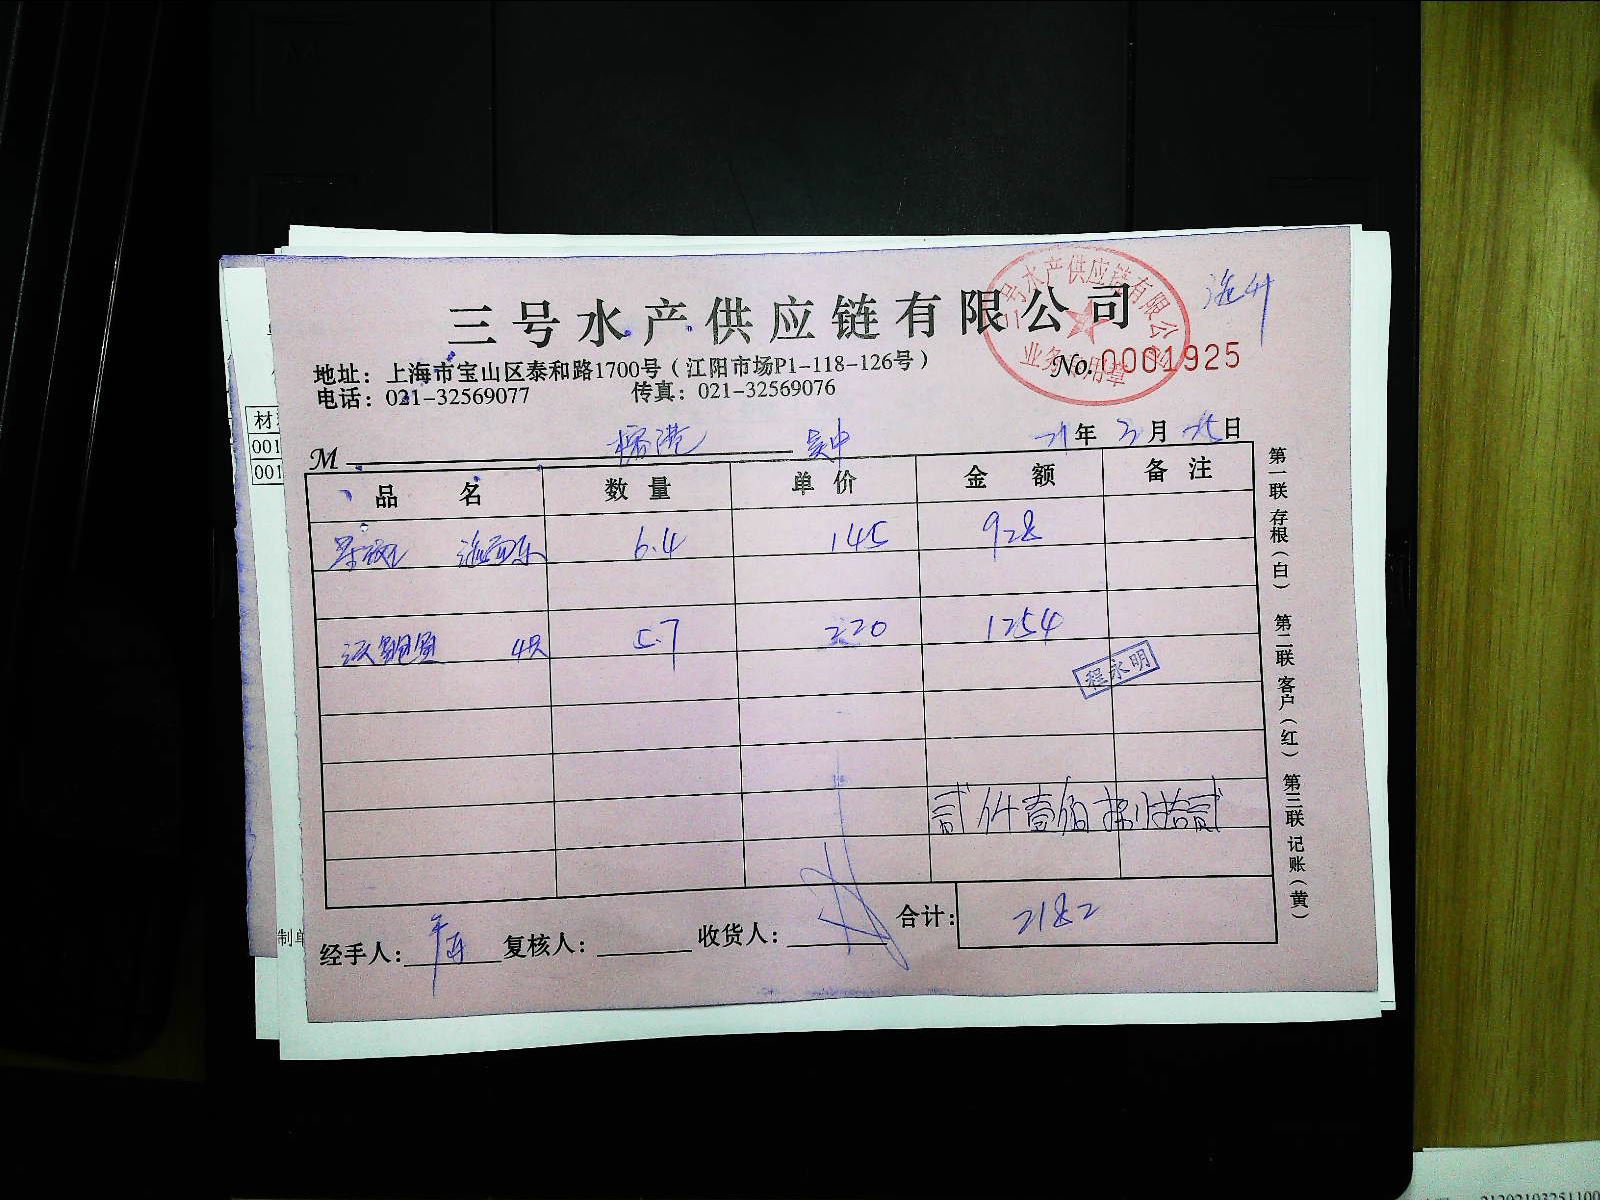 三号水产供应链有限公司
地址：上海市宝山区泰和路1700号（江阳市场P1-118-126号）
No.0001925
电话：021-32569077 传真：021-32569076
号水产供应链有限公司
业务专用章
M 吴中 21年3月25日
品名 数量 单价 金额 备注
6.4 145 928
鲍鱼 4只 5.7 220 1254
程永明
贰仟壹佰捌拾贰
经手人： 复核人： 收货人： 合计： 2182
第一联 存根（白） 第二联 客户（红） 第三联 记账（黄）
材
001
001
制单